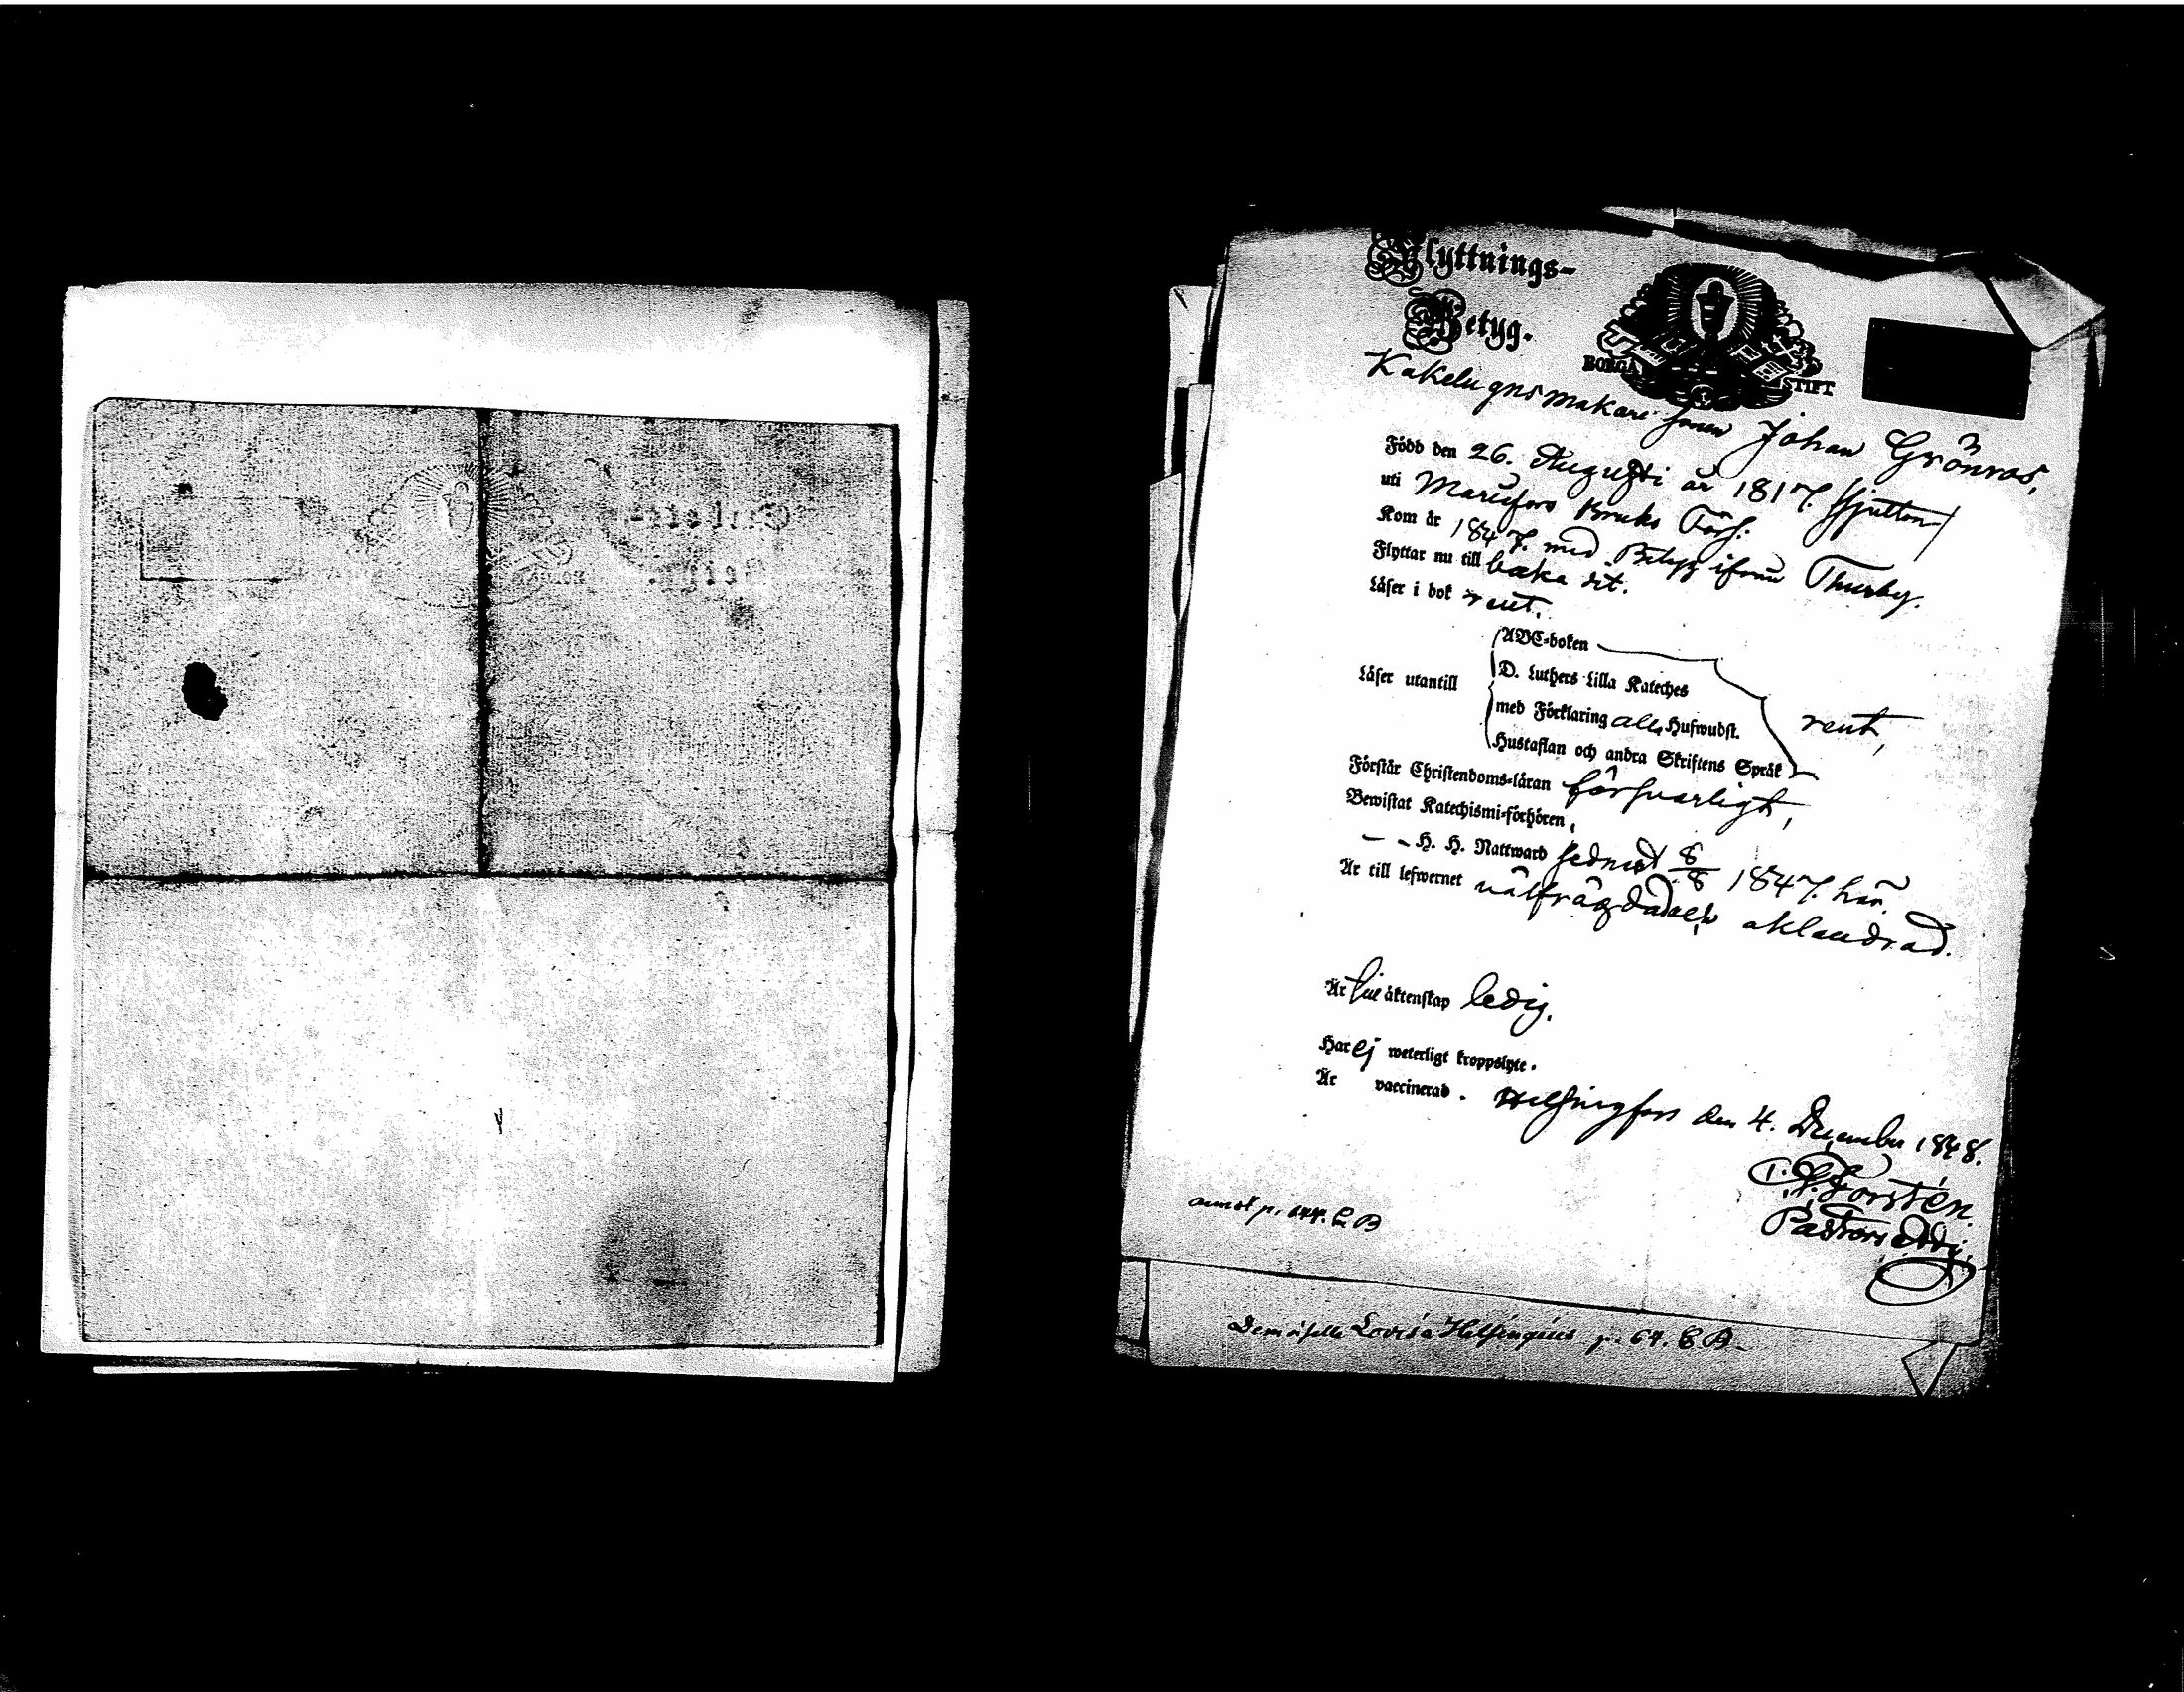 Flyttnings-
Betyg.
BORGÅ STIFT
Kakelugnsmakare sonen Johan Grönros,
Född den 26. Augusti år 1817. (sjutton)
uti Mariefors Bruks Förs:
Kom år 1847. med Betyg ifrån Thusby.
Flyttar nu till baka dit.
Läser i bok rent.
ABC-boken
Läser utantill
D. Luthers Lilla Kateches
med Förklaring alla Hufwudst.
rent,
Hustaflan och andra Skriftens Språk
Förstår Christendoms-läran försvarligt,
Bewistat Katechismi-förhören,
— - H. H. Nattward sednast 8/8 1847. här.
Är till lefwernet välfrägdad och oklandrad.
Är till äktenskap ledig.
Har ej weterligt kroppslyte.
Är vaccinerad. Helsingfors den 4. December 1848.
Forstén.
Pastors Adj.
annot p. 144. C B
Demoiselle Lovisa Helsingius p. 64. C B